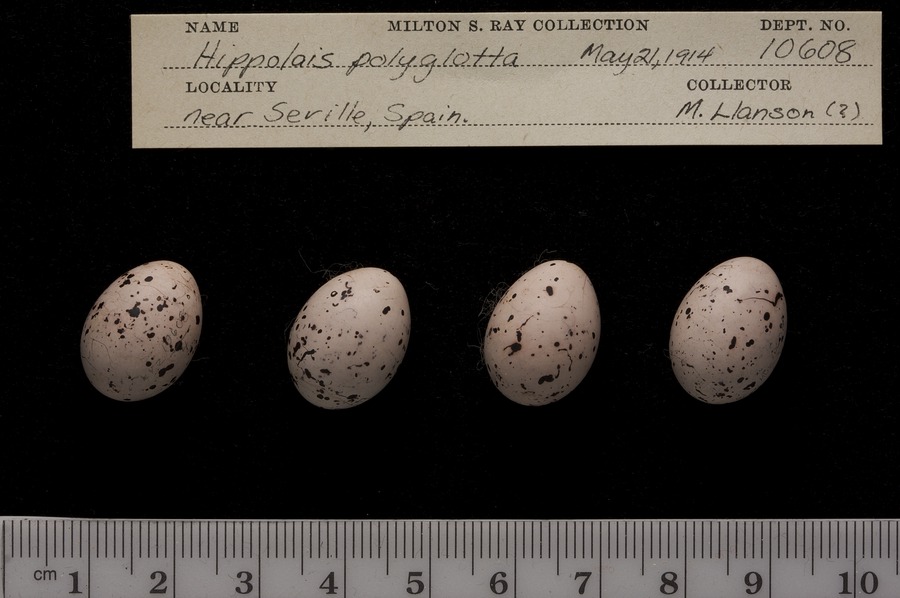 NAME MILTON S. RAY COLLECTION DEPT. NO.
Hippolais polyglotta May 21, 1914 10608
LOCALITY COLLECTOR
near Seville, Spain. M. Llanson (?)
cm 1 2 3 4 5 6 7 8 9 10